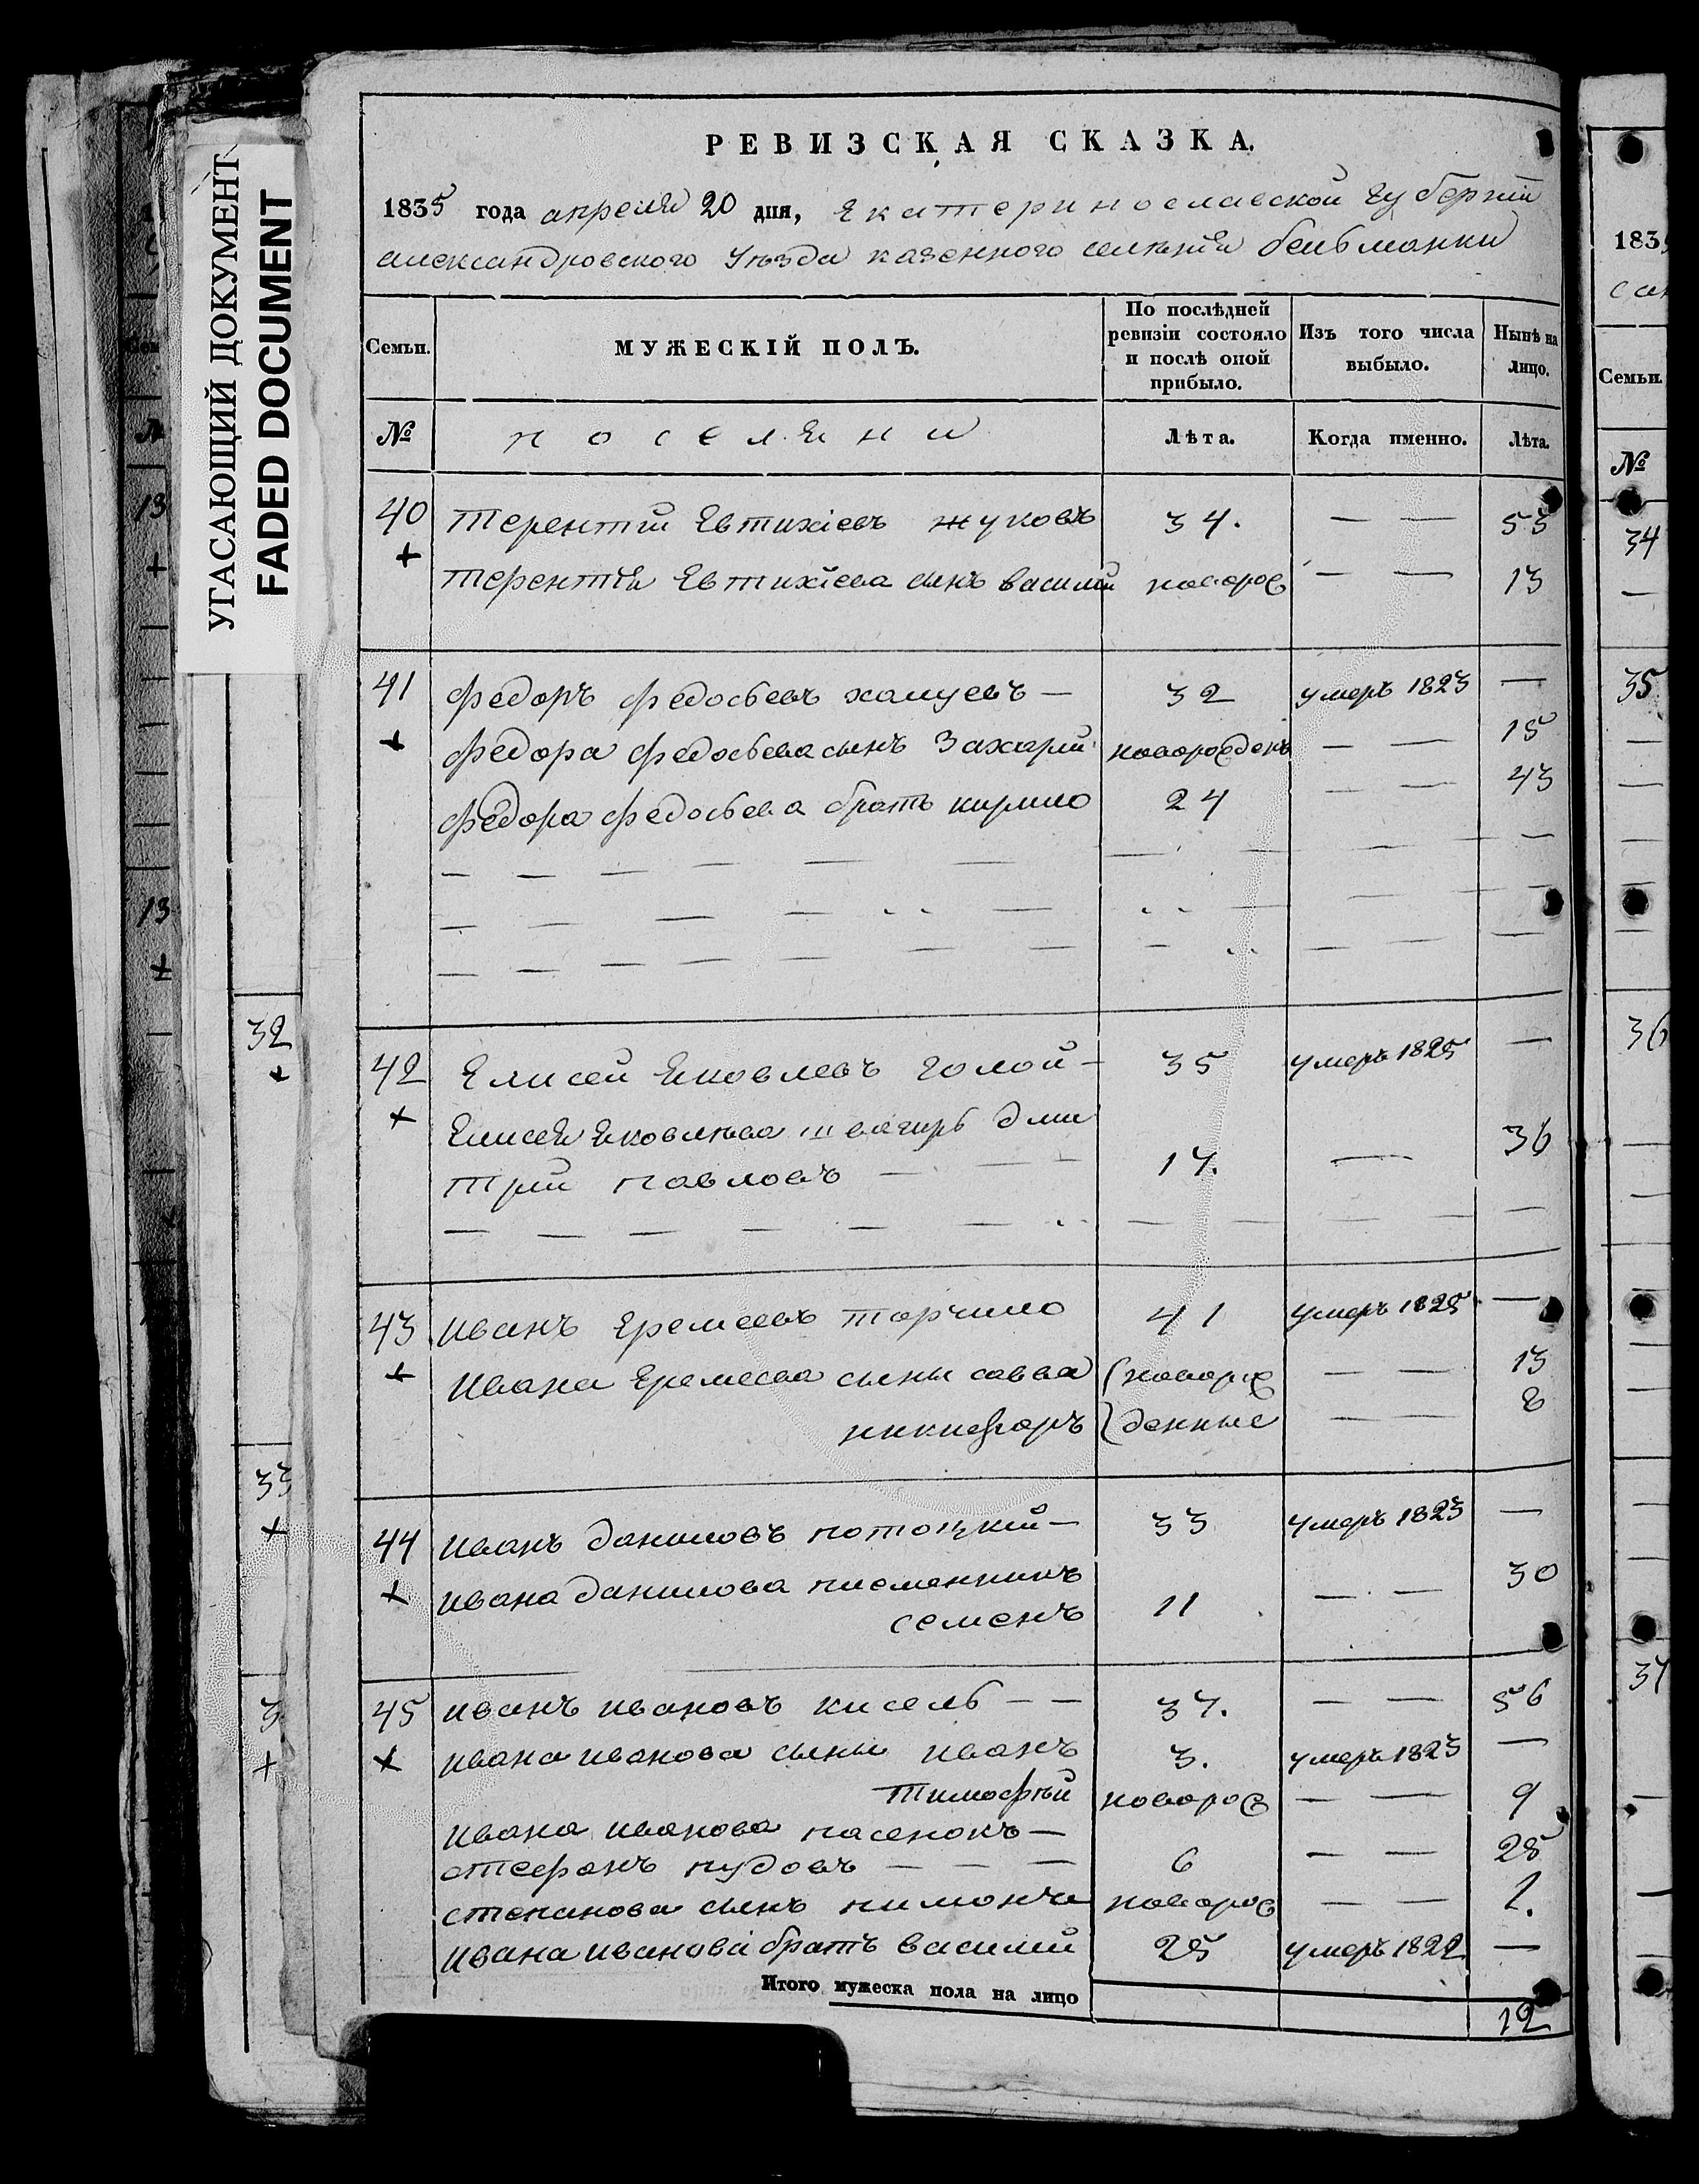 УГАСАЮЩИЙ ДОКУМЕНТ
FADED DOCUMENT
РЕВИЗСКАЯ СКАЗКА.
1835 года апреля 20 дня, Екатеринославской губерніи
александровского уѣзда казенного селѣнія бельманки
Семьи. МУЖЕСКІЙ ПОЛЪ. По послѣдней ревизіи состояло и послѣ оной прибыло. Изъ того числа выбыло. Нынѣ на лицо.
№ поселяни Лѣта. Когда именно. Лѣта.
40 терентій Евтихіевъ жуковъ 34. — — 53
+ терентія Евтихіева сынъ василій новорож — — 13
41 федоръ федосьевъ халуевъ — 32 умеръ 1823 —
+ федора федосьева сынъ Захарій новорожденъ — — 15
федора федосьева братъ кирило 24 — — 43
42 Елисей Яковлевъ голой — 35 умеръ 1825 —
+ Елисея Яковлева швагиръ дми
трій павловъ — — — 17. — 36
43 иванъ Еремеевъ торчило 41 умеръ 1825 —
+ ивана Еремеева сыны савва новорож — — 13
никифоръ денные — — 8
44 иванъ даниловъ потоцкій — 33 умеръ 1823 —
+ ивана данилова племенникъ
семенъ 11 — — 30
45 иванъ ивановъ кисель — — 37. — — 56
+ ивана иванова сыны иванъ 3. умеръ 1823 —
тимофѣй новорож — — 9
ивана иванова пасенокъ —
стефанъ пудовъ — — — 6 — — 25
степанова сынъ пимонъ новорож — — 1.
ивана иванова братъ василий 25 умеръ 1822 —
Итого мужеска пола на лицо 12
32
+
33
+
3
+
13
+
13
+
183
Семьи.
№
34
35
36
37